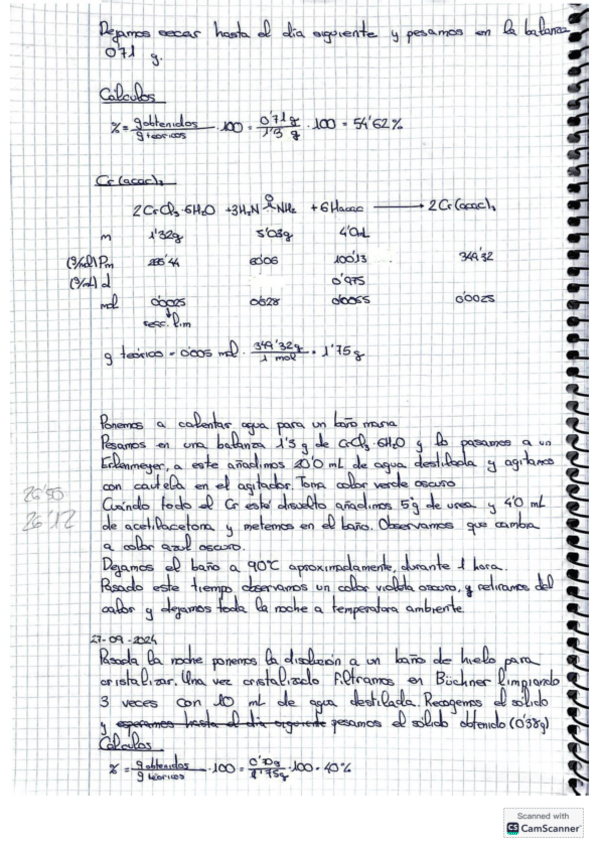 Dejamos secar hasta el día siguiente y pesamos en la balanza
0'71 g.
Cálculos
% = g obtenidos / g teóricos · 100 = 0'71 g / 1'3 g · 100 = 54'62 %
Cr(acac)₃
2 CrCl₃·6H₂O + 3H₂N O NH₂ + 6 Hacac → 2 Cr(acac)₃
m 1'32g 5'03g 4'0mL
(g/mol) Pm 266'44 60'06 100'13 349'32
(g/mL) d 0'975
mol 0'0025 0'028 0'0065 0'0025
reac. lim
g teórico = 0'005 mol · 349'32 g / 1 mol = 1'75 g
Ponemos a calentar agua para un baño maría
Pesamos en una balanza 1'3 g de CrCl₃·6H₂O y lo pasamos a un
Erlenmeyer, a este añadimos 20'0 mL de agua destilada y agitamos
con cautela en el agitador. Toma color verde oscuro
26'50
Cuándo todo el Cr esté disuelto añadimos 5 g de urea y 4'0 mL
26'12
de acetilacetona y metemos en el baño. Observamos que cambia
a color azul oscuro.
Dejamos el baño a 90ºC aproximadamente, durante 1 hora.
Pasado este tiempo observamos un color violeta oscuro, y retiramos del
calor y dejamos toda la noche a temperatura ambiente
27-09-2024
Pasada la noche ponemos la disolución a un baño de hielo para
cristalizar. Una vez cristalizado filtramos en Büchner limpiando
3 veces con 10 mL de agua destilada. Recogemos el sólido
y esperamos hasta el día siguiente pesamos el sólido obtenido (0'38g)
Cálculos
% = g obtenidos / g teóricos · 100 = 0'70g / 1'75g · 100 = 40 %
Scanned with
CS CamScanner